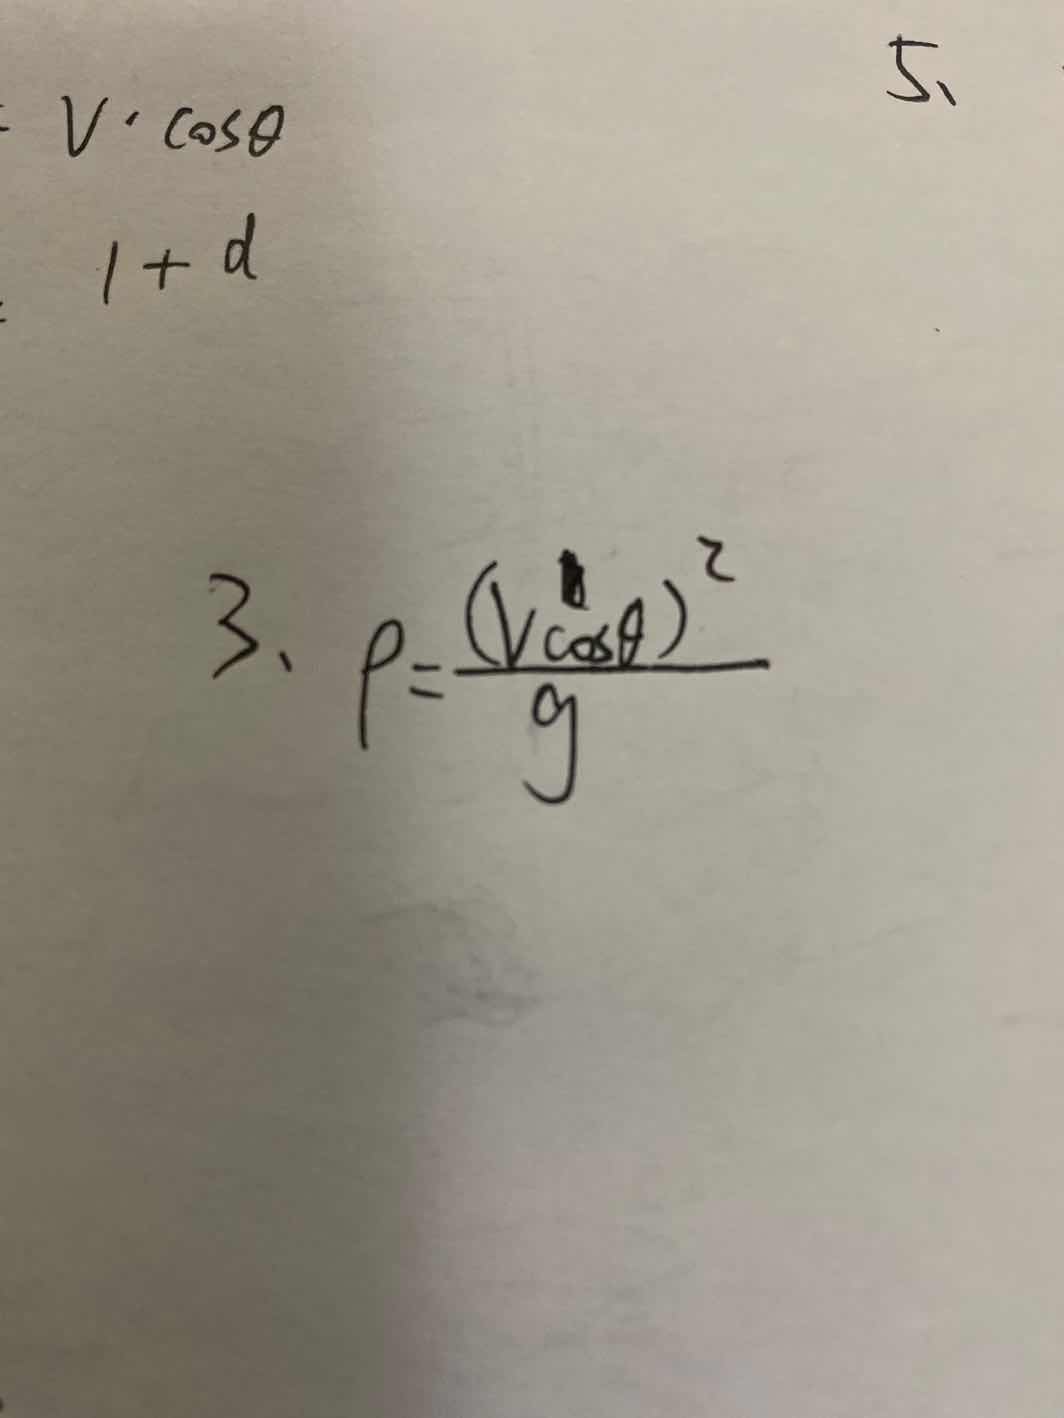 = V · cosθ
1 + d
5、
3、 ρ = (Vcosθ)² / g